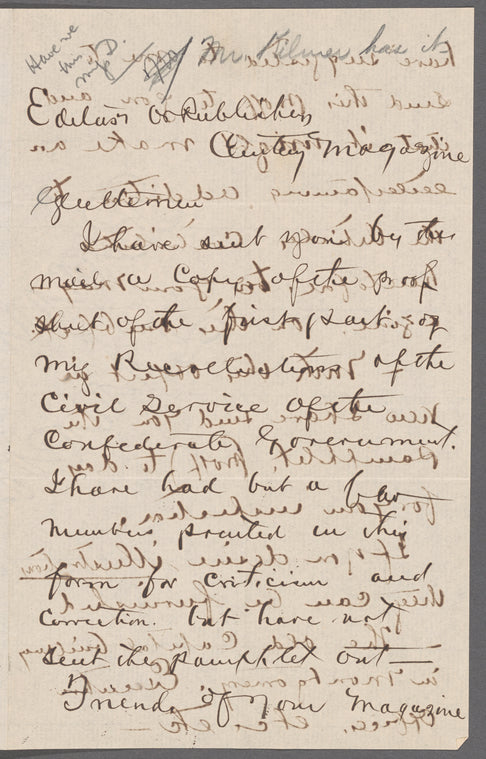 Mr. Gilmer has it
Have we
this
Editors or Publishers
Century Magazine
Gentlemen
I have sent you by the
mail a Copy of the proof
sheet of the first part of
my Recollections of the
Civil Service of the
Confederate Government.
I have had but a few
numbers printed in this
form for criticism and
correction. but have not
sent the pamphlet out—
Friends of your Magazine